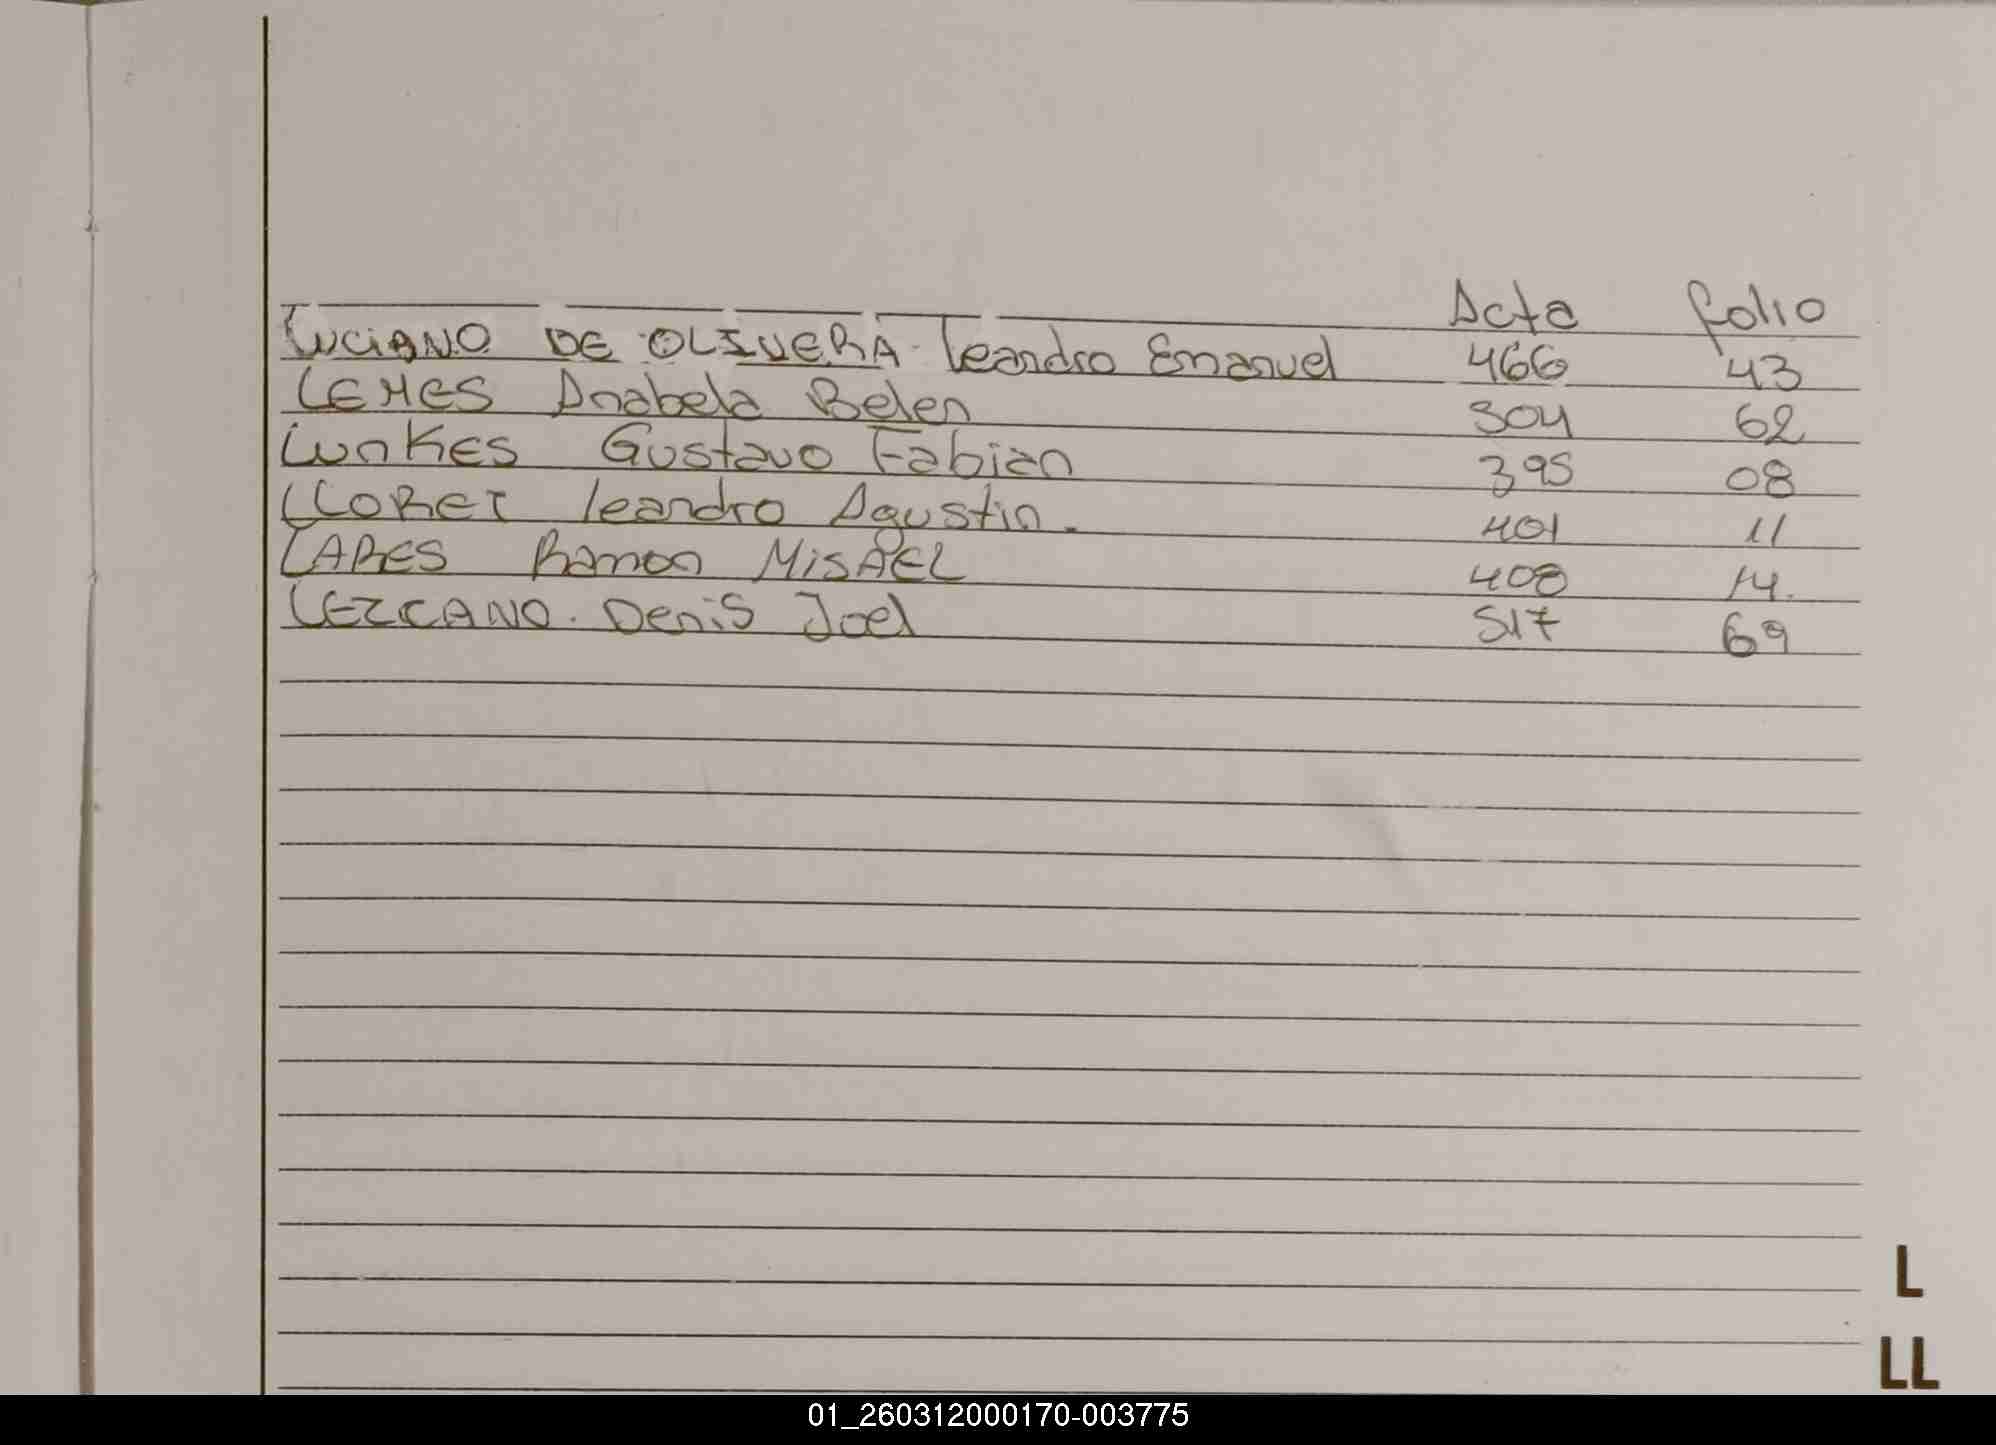 Acta folio
LUCIANO DE OLIVERA Leandro Emanuel 466 43
LEMES Anabela Belen 304 62
Lunkes Gustavo Fabian 395 08
LLORET leandro Agustin. 401 11
LARES Ramon MISAEL 408 14.
LEZCANO. Denis Joel 517 69
L
LL
01_260312000170-003775